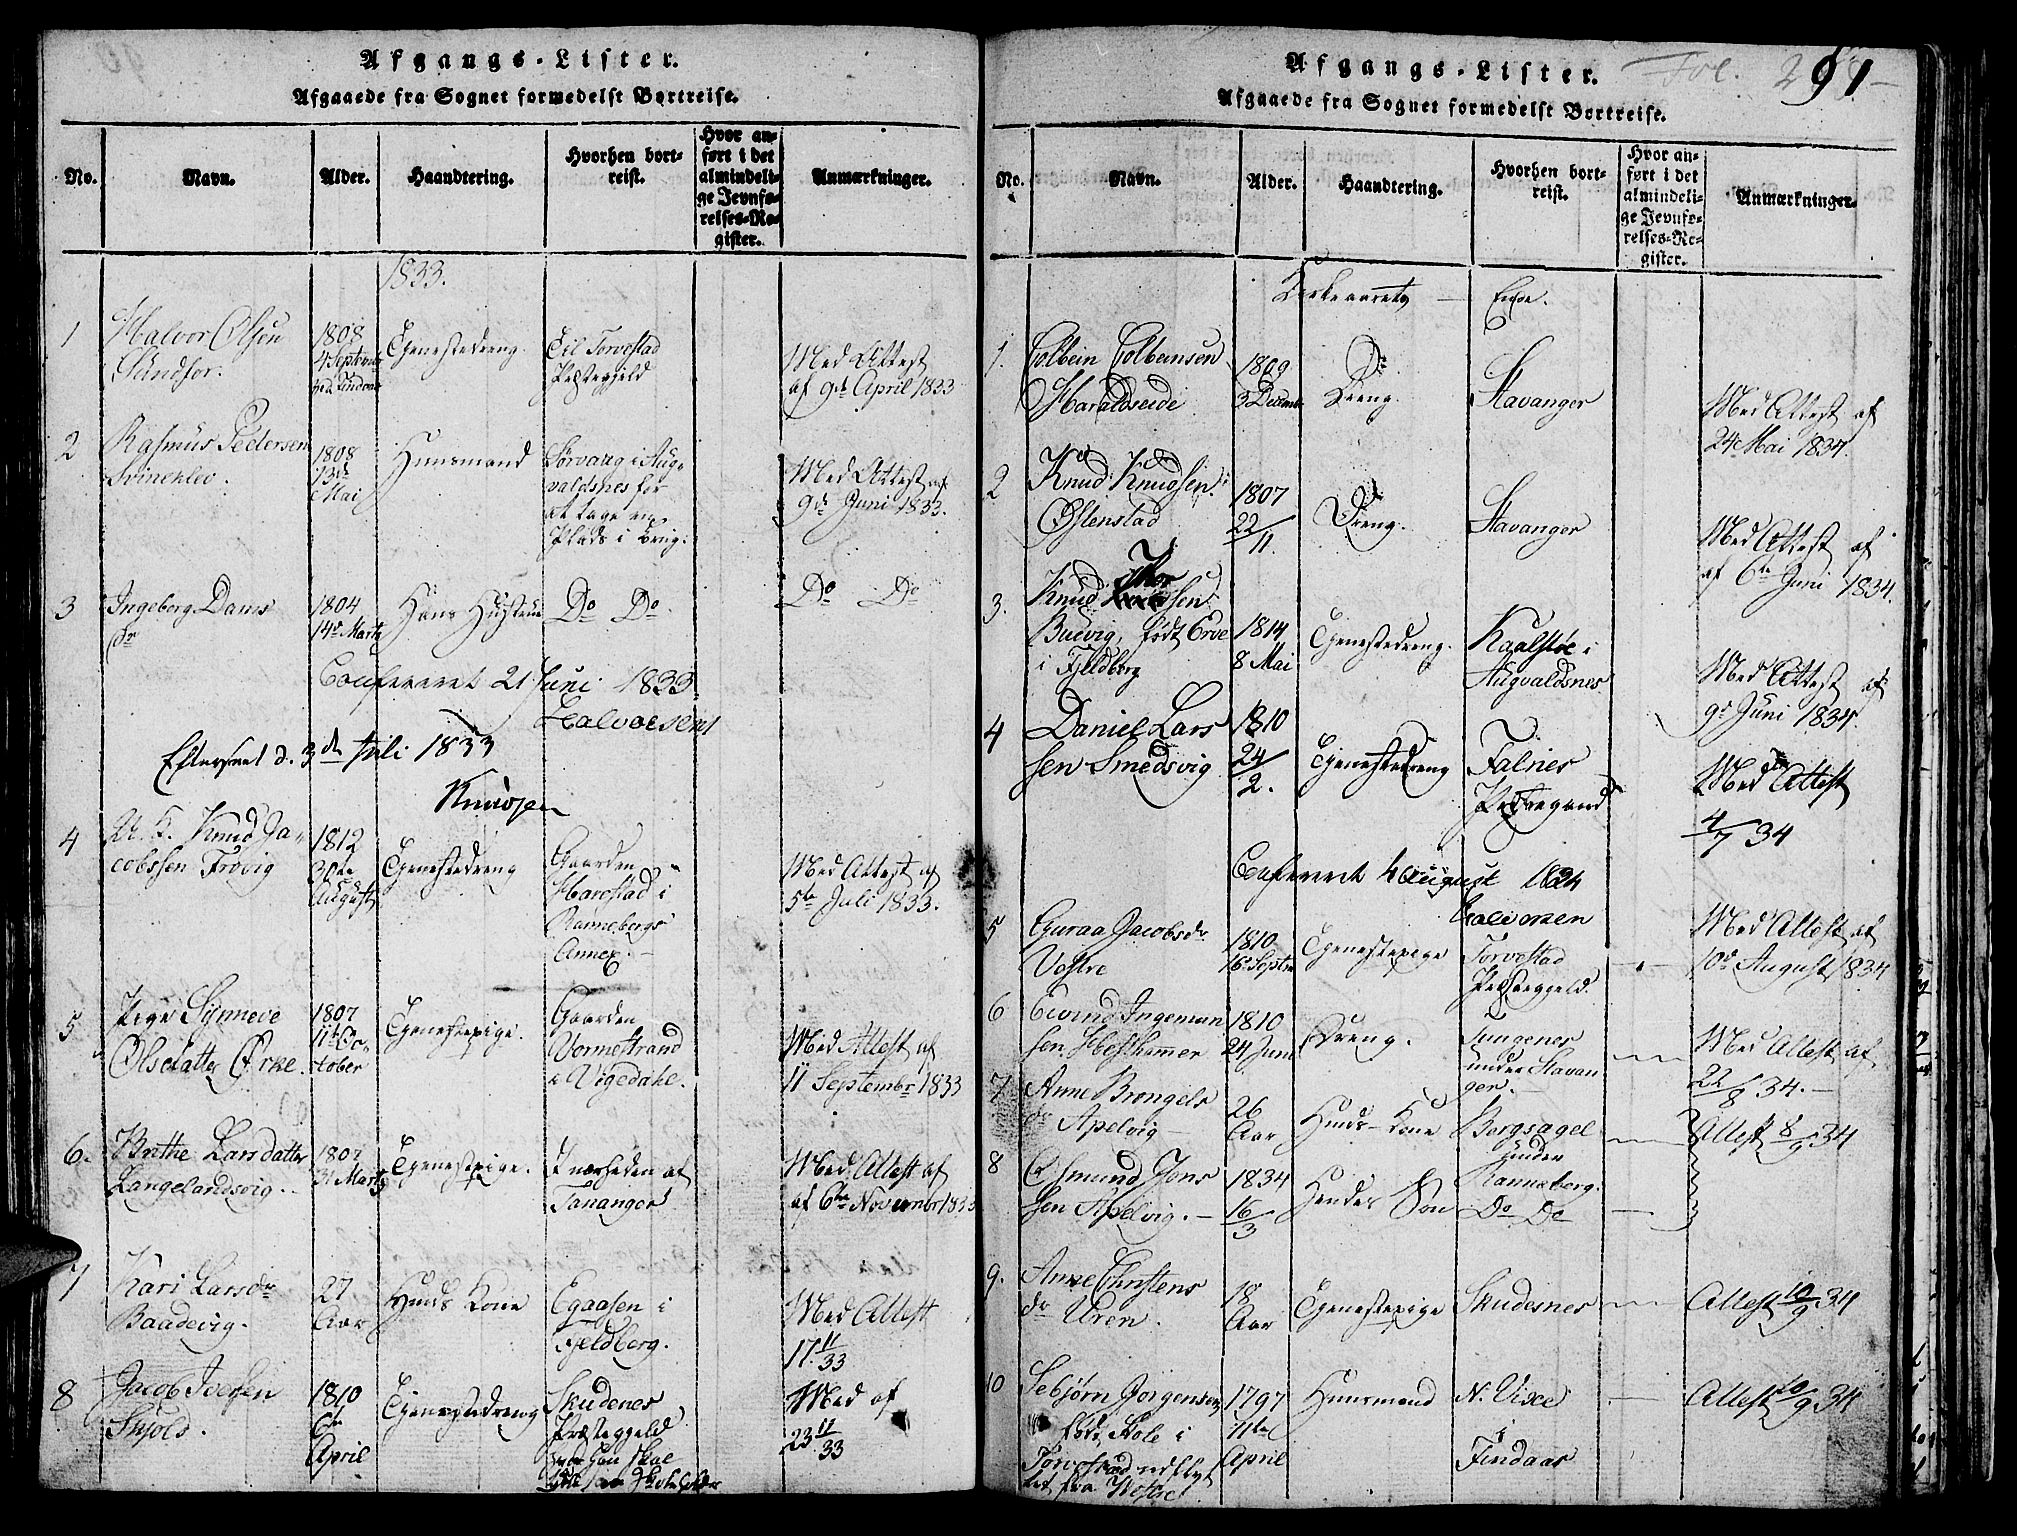 Afgangs-Lister.
Afgaaede fra Sognet formedelst Bortreise.
No.
Navn.
Alder.
Haandtering.
Hvorhen bort-
reist.
Hvor an-
ført i det
almindeli-
ge Jevnfø-
relses-Re-
gister.
Anmærkninger.
1833.
1
Halvor Olsen
Sundfor.
1808
4 September
Tjenestedreng
Til Torvestad
Præstegjeld
Med Attest
af 9de April 1833
2
Rasmus Pedersen
Svineklev.
1808
13de
Mai
Huusmand
Sørvaag i Aug-
valdsnes for
at tage en
Plads i brug.
Med Attest af
9de Juni 1833.
3
Ingeborg Dans
dr
1804
14de Marts
Hans Hustrue
Do Do
Do Do
Confereret 21 Juni 1833
Halvorsen
Efterseet d. 3de Juli 1833
Knudsen
4
U. K. Knud Ja-
cobsen Frövig
1812
30te
August
Tjenestedreng
Gaarden
Harestad i
Rannebergs
Annex.
Med Attest af
5te Juli 1833.
5
Pige Synneve
Olsdatter Ørke.
1807
11te Oc-
tober
Tjenestepige.
Gaarden
Vormestrand
i Vigedahl.
Med Attest af
11 Septembr 1833
6.
Birthe Larsdatter
Langelandsvig.
1807
31 Marts
Tjenestepige.
I nærheden af
Tananger
Med Attest af
af 6te Novembr 1833
7
Kari Larsdr
Baadevig.
27
Aar
Huus Kone
Egaasen i
Fjeldberg.
Med Attest
17 11/33
8
Jacob Iversen
Skjold.
1810
6te
April
Tjenestedreng
Skudenes
Præstegjeld
hvor han skal
Med af
23 11/33
Afgangs-Lister.
Fol.
291
Afgaaede fra Sognet formedelst Bortreise.
No.
Navn.
Alder.
Haandtering.
Hvorhen bort-
reist.
Hvor an-
ført i det
almindeli-
ge Jevnfø-
relses-Re-
gister.
Anmærkninger.
Kirkeaarets — Ende.
1.
Colbein Colbeinsen
Haraldseide
1809
3 Decemb
Do
Dreng.
Stavanger
Med Attest af
24 Mai 1834.
2
Knud Knudsen
Østenstad
1807
22/11
Dreng.
Stavanger
Med Attest af
af 6te Juni 1834.
3.
Knud Thorsen
Budvig, født Erve
i Fjeldberg
1814
8 Mai
Tjenestedreng.
Kaalstøe i
Augvaldsnes
Med Attest af
9de Juni 1834.
4
Daniel Lars
sen Smedsvig
1810
24/2.
Tjenestedreng
Falnes
Præstegaard
Med Attest
4/7 34
Confereret 4 August 1834
Halvorsen
5
Guraa Jacobsdr
Vostre
1810
16de Septr
Tjenestepige
Torvestad
Præsteggeld.
Med Attest af
10de August 1834
6
Eivind Ingeman
sen Hesthammer
1810
24 Juni
Dreng.
Tungenes
under Stavan
ger.
Med Attest af
22/8 34.
7
Anne Brongels
dr Apelvig
26
Aar
Huus-Kone
Borgsagel
under
Ranneberg.
Attest 8/9 34
8
Osmund Jons
sen Apelvig.
1834
16/3
Hendes Søn
Do Do
9.
Anne Christens
dr Uren.
18
Aar
Tjenestepige
Skudesnes
Attest 10/9 34
10
Sebjørn Jorgensen
født Stole i
Torvestad udflyt
tet fra Vostre
1797
11te
April
Huusmand
N. Vixe
i
Findaas
Attest 10/9 34